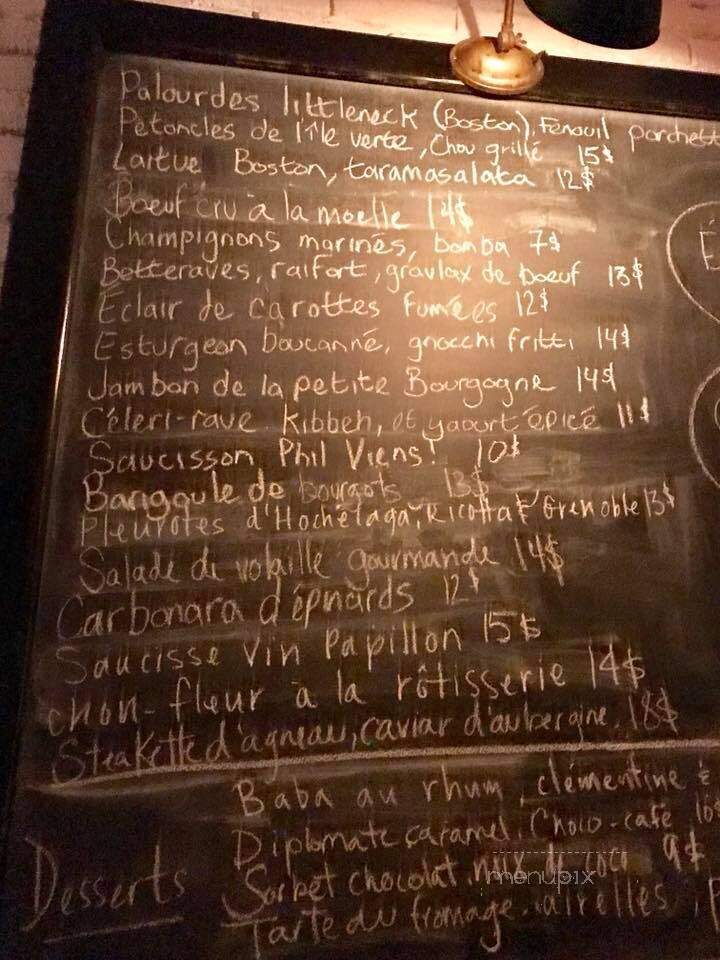 Palourdes littleneck (Boston), Fenouil porchett
Pétoncles de l'île verte, Chou grillé 15$
Laitue Boston, taramasalata 12$
Boeuf cru à la moelle 14$
Champignons marinés, bomba 7$
Betteraves, raifort, gravlax de boeuf 13$
É
Éclair de carottes fumées 12$
Esturgeon boucanné, gnocchi fritti 14$
Jambon de la petite Bourgogne 14$
Céleri-rave Kibbeh, et yaourt épicé 11$
Saucisson Phil Viens! 10$
Barigoule de bourgots 13$
Pleurotes d'Hochelaga, Ricotta & Grenoble 13$
Salade de volaille gourmande 14$
Carbonara d'épinards 12$
Saucisse Vin Papillon 15$
chou-fleur à la rôtisserie 14$
Steakette d'agneau, caviar d'aubergine, 18$
Desserts
Baba au rhum, clémentine &
Diplomate caramel, Choco-café 10$
Sorbet chocolat, noix de coco 9$
Tarte du fromage, airelles,
menupix